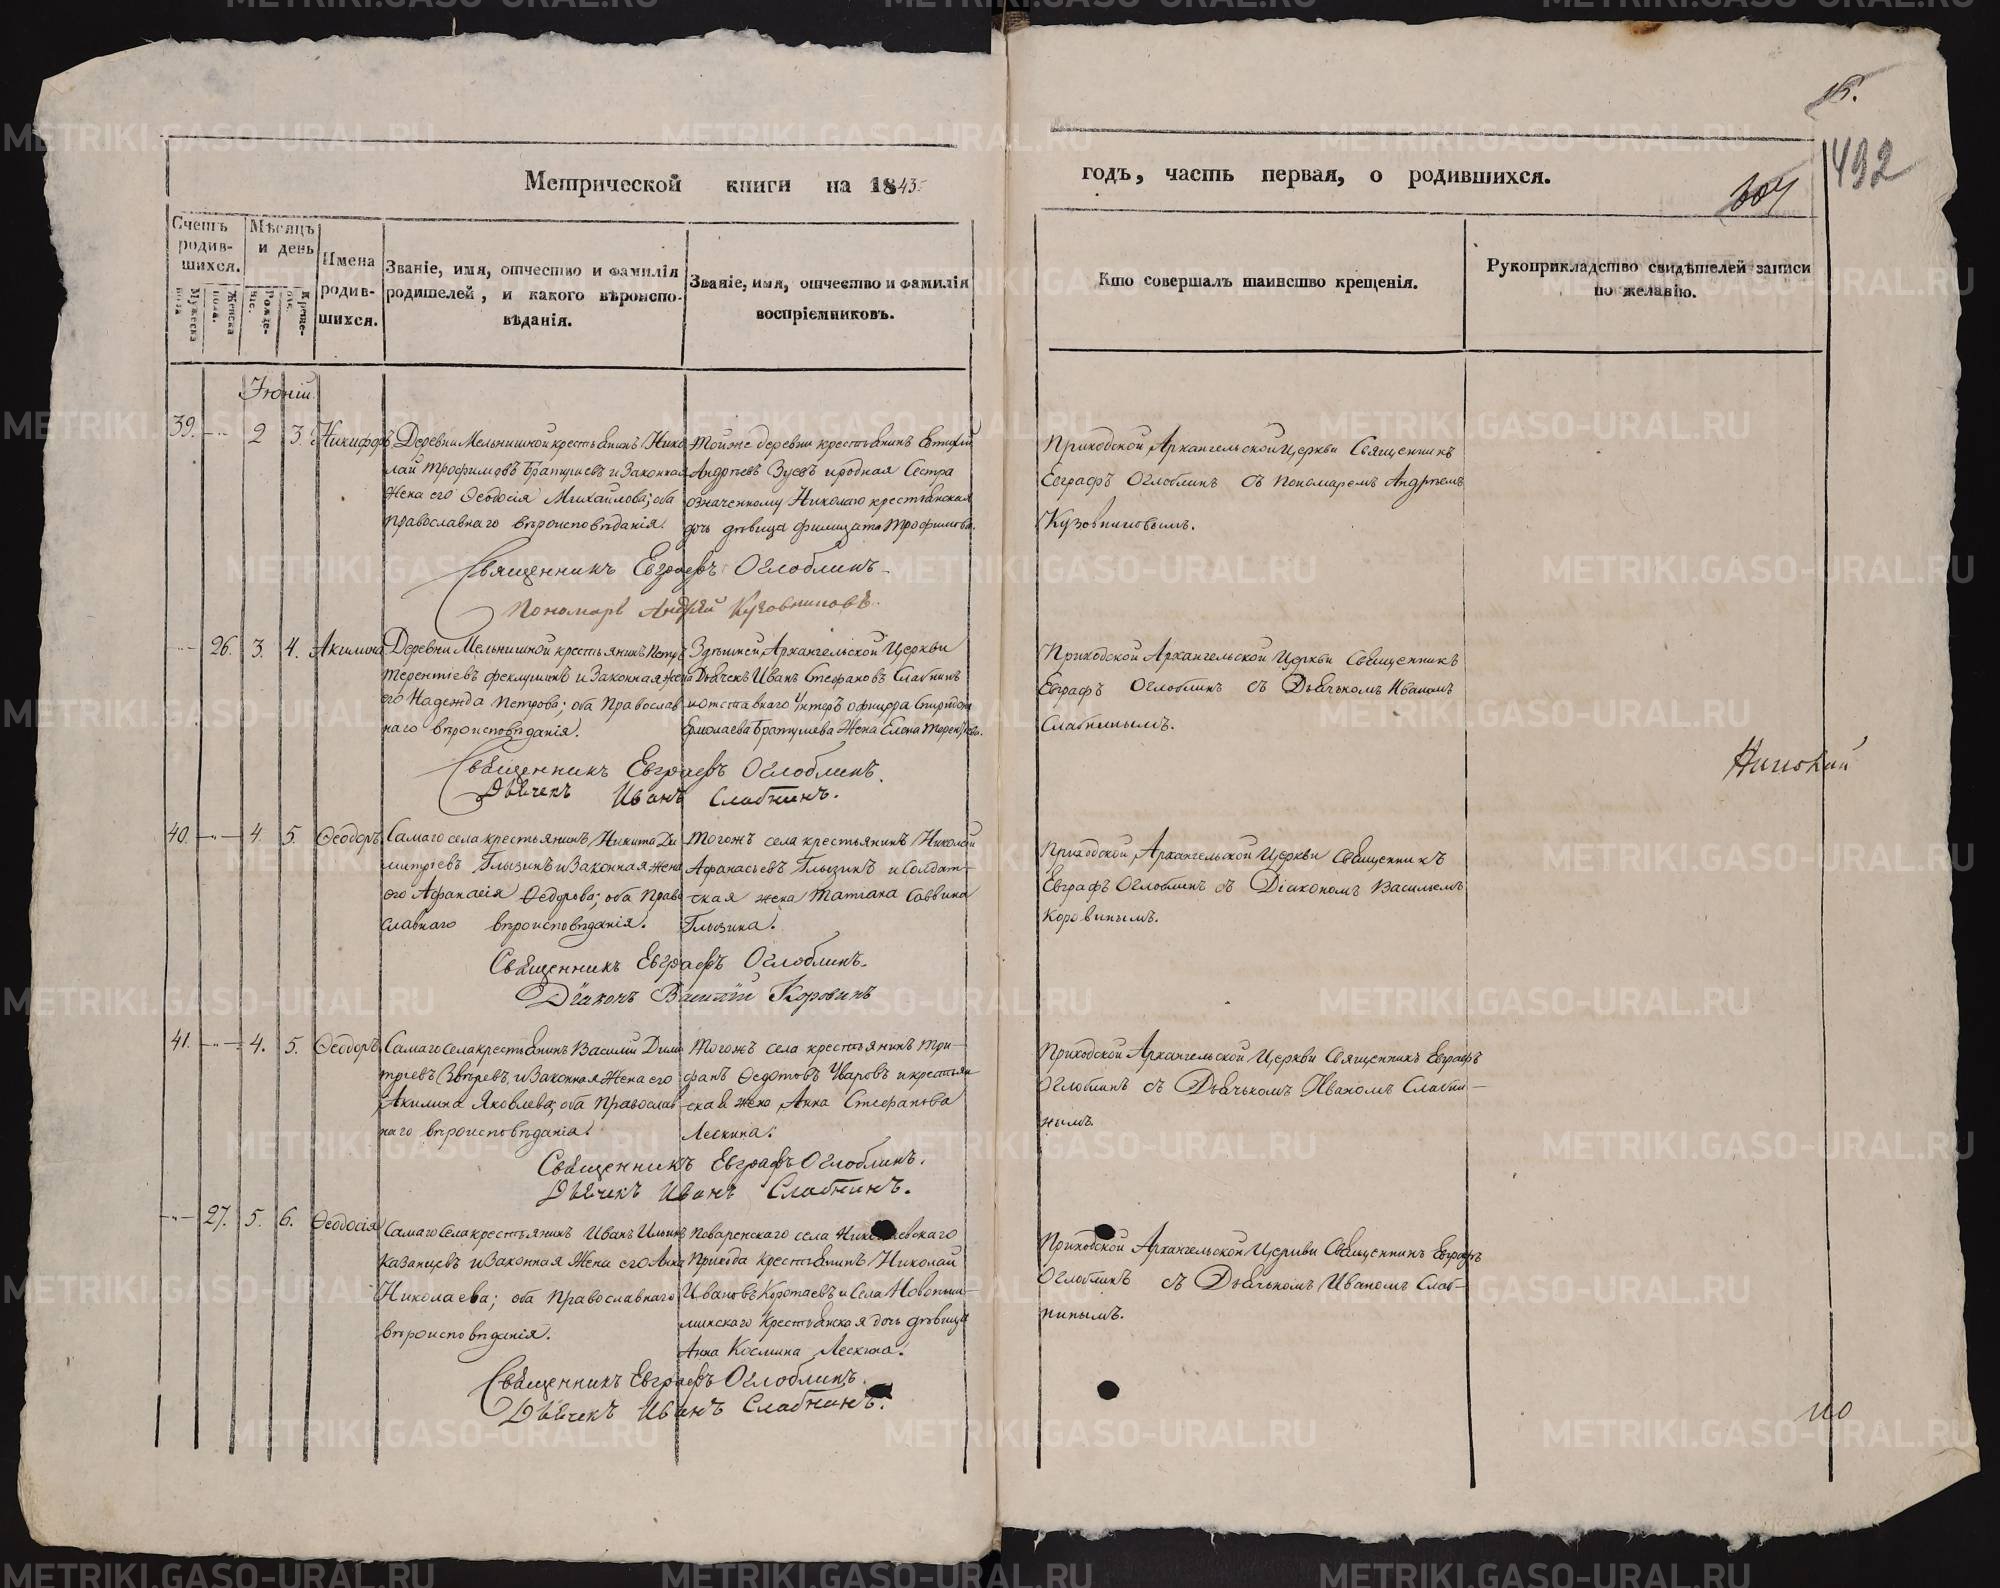 15.
492
304
Метрической книги на 1843.
годъ, часть первая, о родившихся.
Счетъ родив-шихся.
Мужеска пола
Женска пола.
Мѣсяцъ и день
Рожде-нія.
Креще-нія.
Имена родив-шихся.
Званіе, имя, отчество и фамилія
родителей, и какого вѣроиспо-
вѣданія.
Званіе, имя, отчество и фамилія
воспріемниковъ.
Кто совершалъ таинство крещенія.
Рукоприкладство свидѣтелей записи
по желанію.
Іюній
39. 2 3. Никифоръ
Деревни Мельнишной крестьянинъ Нико
лай Трофимовъ Братушевъ и Законная
Жена его Ѳеодосія Михайлова; оба
православнаго вѣроисповѣданія.
Тойже деревни крестьянинъ Евтихій
Андрѣевъ Зуевъ и родная Сестра
означенному Николаю крестьянская
дочь дѣвица Филицата Трофимова.
Приходской Архангельской Церкви Священникъ
Евграфъ Оглоблинъ съ Пономаремъ Андрѣемъ
Кузовниковымъ.
Священникъ Евграфъ Оглоблинъ
Пономарь Андрей Кузовниковъ.
26. 3. 4. Акилина
Деревни Мельнишной крестьянинъ Петръ
Терентіевъ и Законная жена
его Надежда Петрова; оба Православ
наго вѣроисповѣданія.
Здѣшней Архангельской Церкви
Дьячекъ Иванъ Стефановъ Слабнинъ
и отставнаго Унтеръ офицера Спиридона
Ермолаева Братушева Жена Елена Терентьева.
Приходской Архангельской Церкви Священникъ
Евграфъ Оглоблинъ съ Дьячькомъ Иваномъ
Слабнинымъ.
Священникъ Евграфъ Оглоблинъ.
Дьячекъ Иванъ Слабнинъ.
40. 4. 5. Ѳеодоръ
Самаго села крестьянинъ Никита Ди
митріевъ Глызинъ и Законная жена
его Афанасія Ѳедорова; оба Право
славнаго вѣроисповѣданія.
Тогожъ села крестьянинъ Николай
Афанасьевъ Глызинъ и Солдат-
ская жена Татіана Саввина
Глызина.
Приходской Архангельской Церкви Священникъ
Евграфъ Оглоблинъ съ Діакономъ Васильемъ
Коровинымъ.
Священникъ Евграфъ Оглоблинъ.
Діаконъ Василій Коровинъ
41. 4. 5. Ѳеодоръ
Самаго Села крестьянинъ Василій Дими
тріевъ Звѣревъ, и Законная Жена его
Акилина Яковлева; оба Православ
наго вѣроисповѣданія.
Тогожъ села крестьянинъ Три-
фанъ Ѳедотовъ Уваровъ и крестьян
ская жена Анна Стефанова
Лескина.
Приходской Архангельской Церкви Священникъ Евграфъ
Оглоблинъ съ Дьячькомъ Иваномъ Слабни-
нымъ.
Священникъ Евграфъ Оглоблинъ.
Дьячекъ Иванъ Слабнинъ.
27. 5. 6. Ѳеодосія
Самаго Села крестьянинъ Иванъ Ильинъ
Казанцевъ и Законная Жена его Анна
Николаева; оба Православнаго
вѣроисповѣданія.
Поваренскаго села Николаевскаго
Прихода Крестьянинъ Николай
Ивановъ Коротаевъ и Села Новопыш-
минскаго Крестьянская дочь дѣвица
Анна Космина Лескина.
Приходской Архангельской Церкви Священникъ Евграфъ
Оглоблинъ съ Дьячькомъ Иваномъ Слаб-
нинымъ.
Священникъ Евграфъ Оглоблинъ.
Дьячекъ Иванъ Слабнинъ.
METRIKI.GASO-URAL.RU